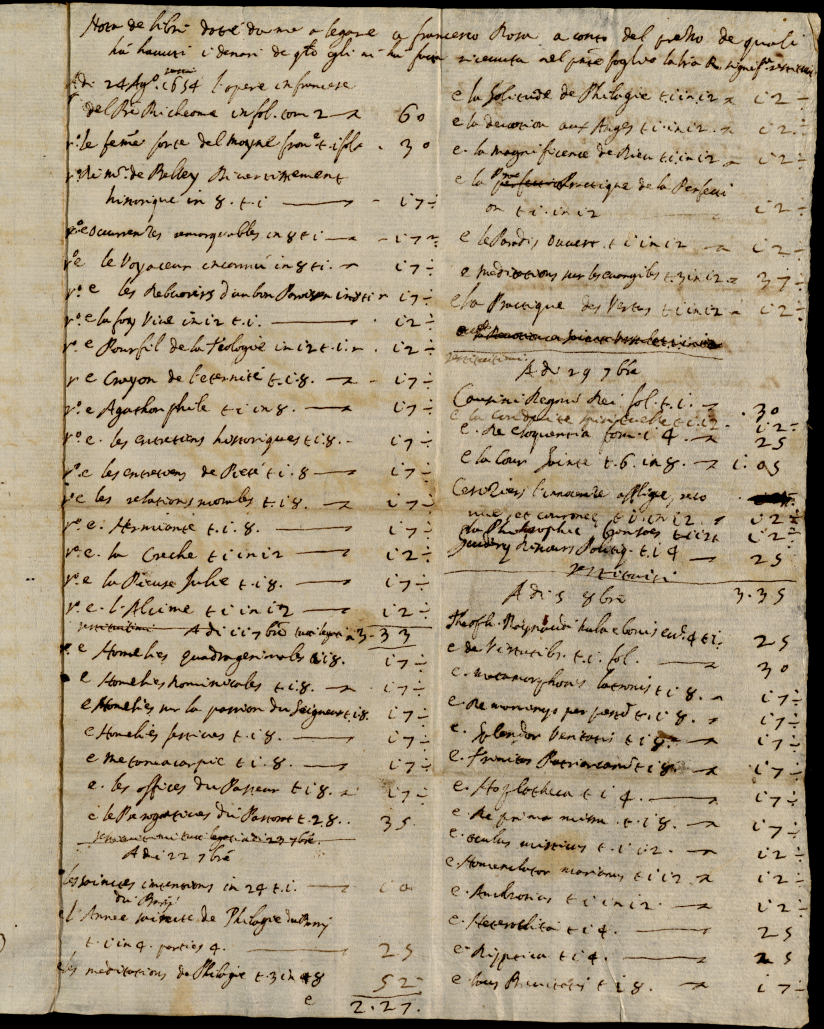 Nota de libri dati da me a legare a francesco Rosa a conto del prezzo de quali
hà havuti i denari de qto egli mi hà fatta ricevuta nel pnte foglio
Adi 24 Agto. 1654 l'opere in francese
del Pre Richeome in fol. tom 2 60
le feme forte del moyne t. i fol. 30
Di mr. de Belley Divertissement
historique in 8. t. i i7÷
e occurrences remarquables in 8 t i i7÷
e le Voyageur inconnù in 8 t i. i7÷
e les Rebvoirs d'un bon Paroissien i7÷
e la foy Vive in i2 t. i. i2÷
e Pourfil de la Teologie in i2 t. i. i2÷
e Crayon de l'eternité t. i 8. i7÷
e Agathonphile t i in 8. i7÷
e. les entretiens historiques t i 8. i7÷
e les entretiens de Pieté t. i 8 i7÷
e les relations morales t. i 8. i7÷
e. Hermiante t. i. 8. i7÷
e. la Creche t i in i2 i2÷
e la Pieuse Julie t. i 8. i7÷
e. l'Alcime t i in i2 i2÷
A di ii 7bre 3.33
e Homelies quadragesimales i 8. i7÷
e Homelies Dominicales t. i 8. i7÷
e Homelies sur la passion du Seigneur t i 8. i7÷
e Homelies festives t. i 8. i7÷
e metaneacarpie t. i 8. i7÷
e. les offices du Pasteur t i 8. i7÷
e le Parogatives du Pastorat t. 2 8. 35
A di 22 7bre
les saintes intentions in 24 t. i. i0
du Barij
e l'Année sainte de Philagie du Barij
t. i in 4. parties 4. 25
e les meditations de Philagie t. 3 in 8 52÷
e 2.27.
e la Solitude de Philagie t i in i2 i2÷
e la devotion aux Anges t i in i2. i2÷
e. la magnificence de Dieu t i in i2 i2÷
e la Practique de la Perfecti
on t. i. in i2 i2÷
e le Paradis Ouvert. t i in i2 i2÷
e meditations sur les evangiles t. 3 in i2. 37÷
e la Practique des Vertus t i in i2 i2÷
A di 29 7bre
Causini Regnù Dei fol. t. i. 30
e la conduite spirituelle t i i2 i2÷
e. De eloquentia tom. i 4. 25
e la Cour Sainte t. 6. in 8. i.05
Ceriziers l'innocence affligé, reco
nue, et couronee t i in i2. i2÷
e la Philosophie t i i2 i2÷
t. i 4 25
restituiti
A di 5 8bre 3.35
Theoph. Raynaudi t i. 25
e de Virtutib. t. i. fol. 30
e. metamorphosis latronis t i 8. i7÷
e. De martyrio per pestē t. i 8. i7÷
e. Splendor Veritatis t i 8. i7÷
e. Trinitas Patriarcarū t i 8. i7÷
e. Hoplotheca t i 4. i7÷
e. De prima missa t. i 8. i7÷
e. oculus misticus t. i i2. i2÷
e. Nomenclator marianus t i i2. i2÷
e. Anchronius t i in i2. i2÷
e. Heteroclita t i 4. 25
e. Diptica t i 4. 25
e. laus Brevitatis t i 8. i7÷